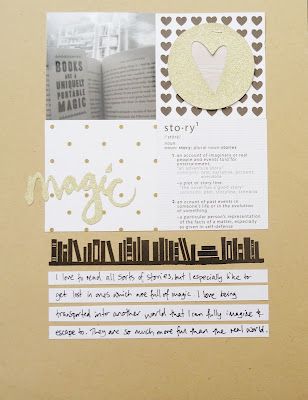 BOOKS
ARE A
UNIQUELY
PORTABLE
MAGIC
magic
sto·ry¹
noun
noun: story; plural noun: stories
1. an account of imaginary or real
people and events told for
entertainment.
"an adventure story"
- a plot or story line.
"the novel has a good story"
2. an account of past events in
someone's life or in the evolution
of something
- a particular person's representation
of the facts of a matter, especially
as given in self-defense
I love to read all sorts of stories, but I especially like to
get lost in ones which are full of magic. I love being
transported into another world that I can fully imagine &
escape to. They are so much more fun than the real world.